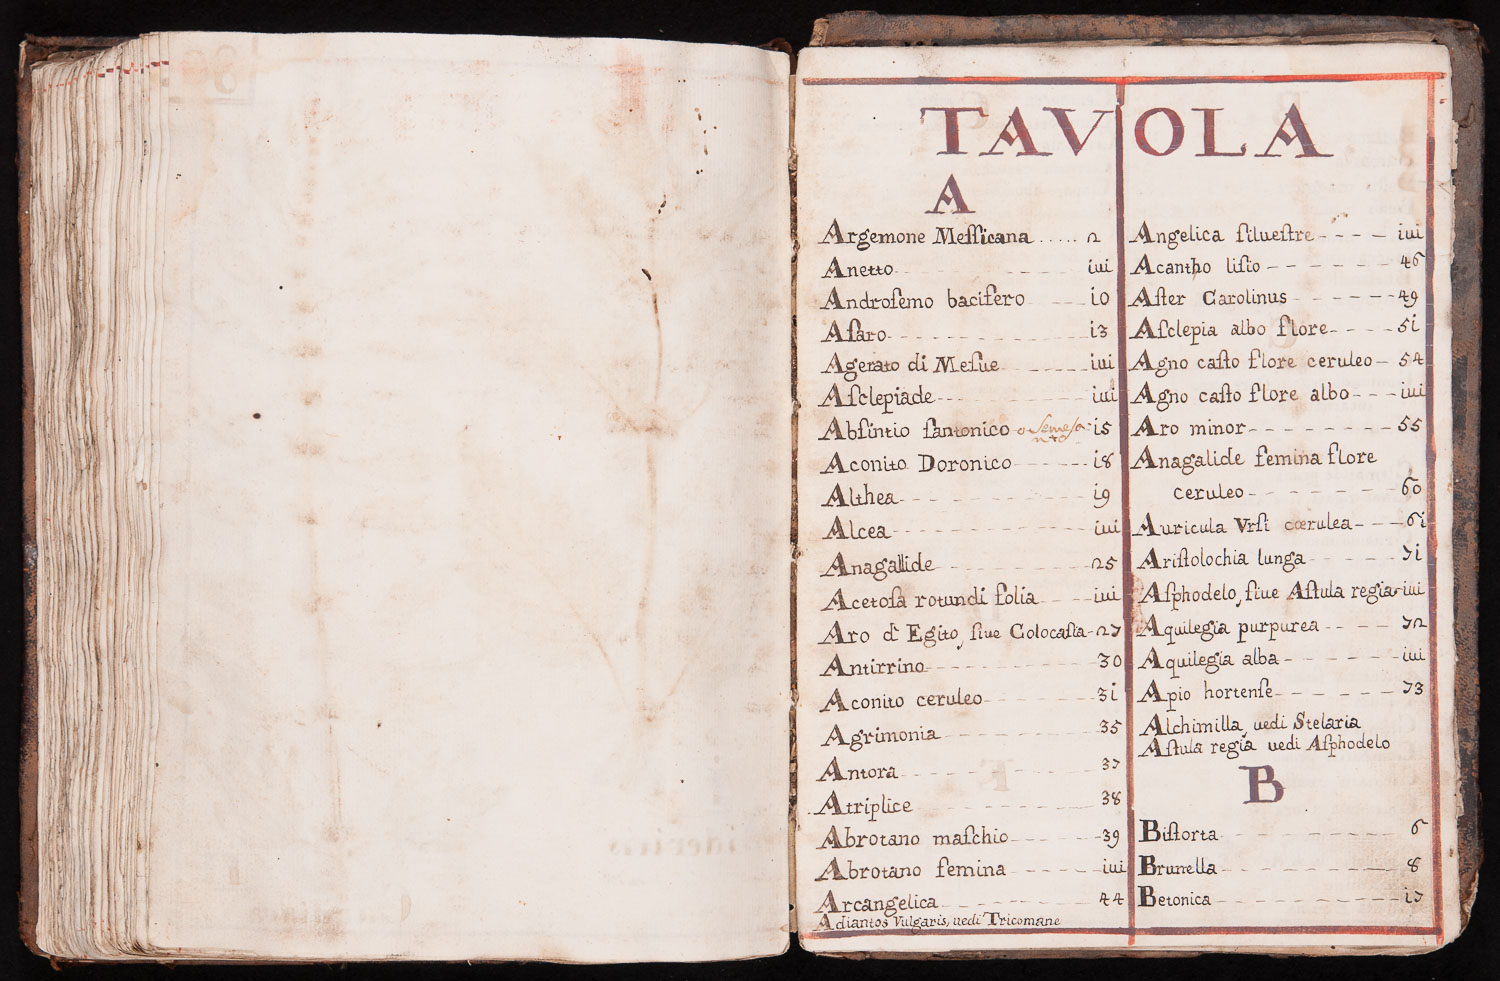 TAVOLA
A
Argemone Meſſicana ..... 2
Anetto iui
Androſemo bacifero io
Aſaro i3
Agerato di Meſue iui
Aſclepiade iui
Abſintio ſantonico o Semeſa nto i5
Aconito Doronico i8
Althea i9
Alcea iui
Anagallide 25
Acetoſa rotundi folia iui
Aro d'Egito, ſiue Colocaſia 27
Antirrino 30
Aconito ceruleo 3i
Agrimonia 35
Antora 37
Atriplice 38
Abrotano maſchio 39
Abrotano femina iui
Arcangelica 44
Adiantos Vulgaris, uedi Tricomane
Angelica ſilueſtre iui
Acantho liſio 46
Aſter Carolinus 49
Aſclepia albo flore 5i
Agno caſto flore ceruleo 54
Agno caſto flore albo iui
Aro minor 55
Anagalide femina flore
ceruleo 60
Auricula Vrſi cœrulea 6i
Ariſtolochia lunga 7i
Aſphodelo, ſiue Aſtula regia iui
Aquilegia purpurea 72
Aquilegia alba iui
Apio hortenſe 73
Alchimilla, uedi Stelaria
Aſtula regia uedi Aſphodelo
B
Biſtorta 6
Brunella 8
Betonica i7